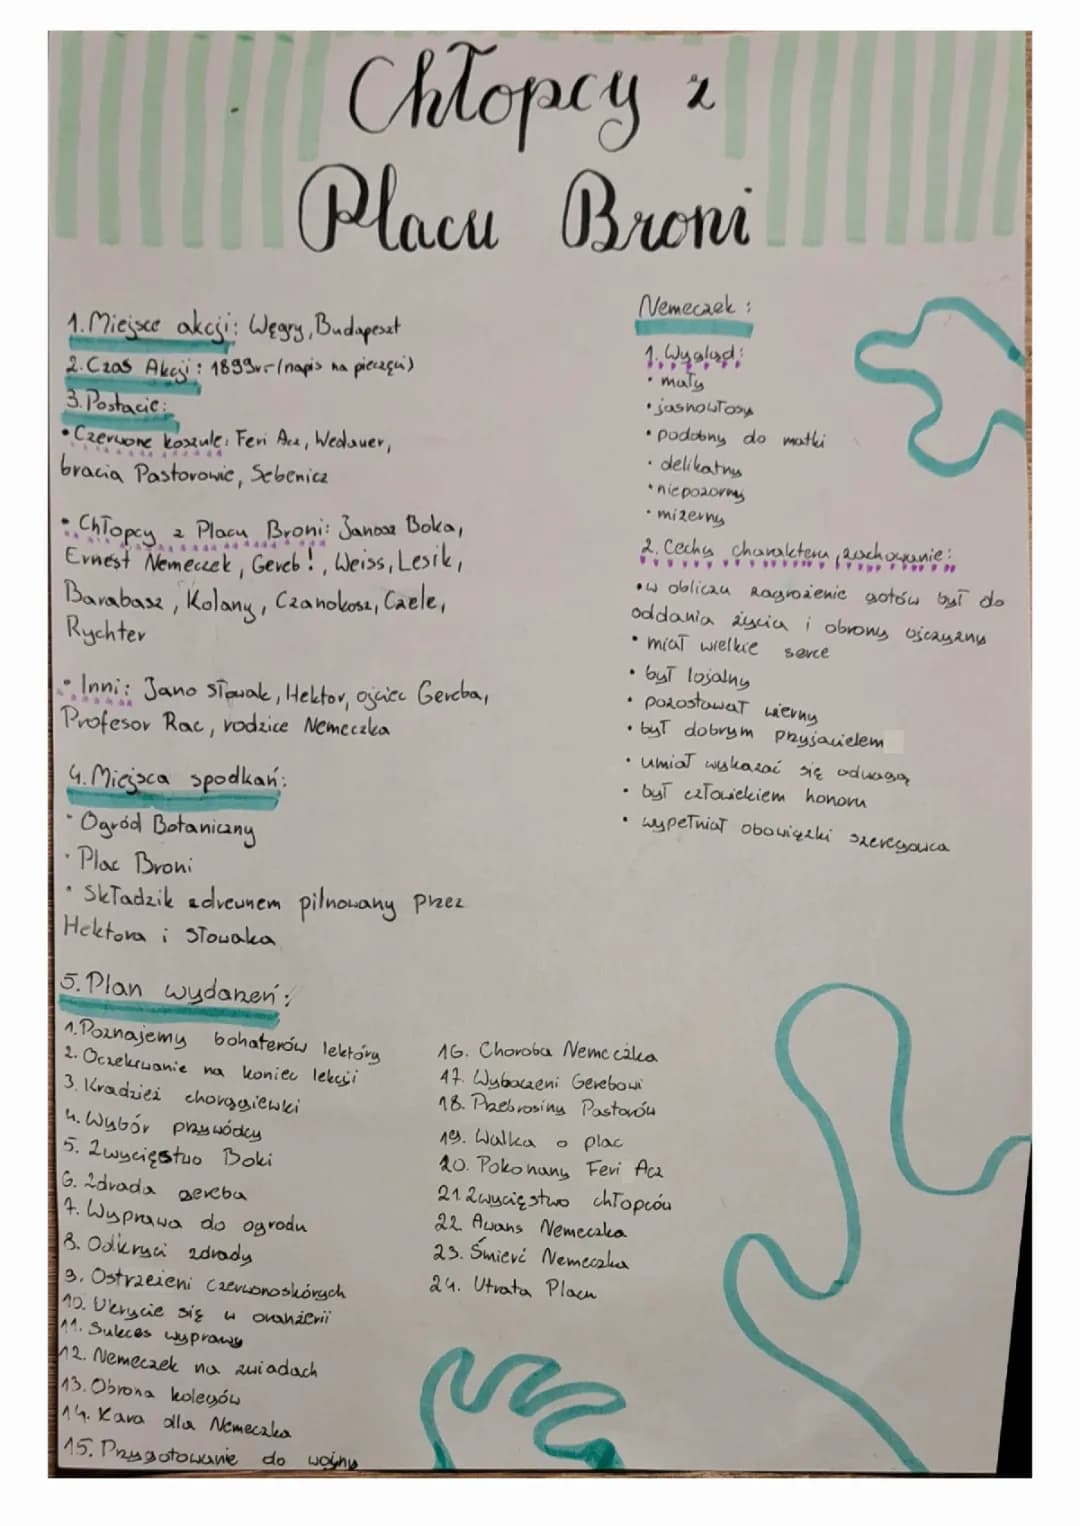 Chłopcy z
Placu Broni
1. Miejsce akcji: Węgry, Budapeszt
2. Czas Akcji: 1899r (napis na pieczęci)
3. Postacie:
• Czerwone koszule: Feri Acz, Wedauer,
bracia Pastorowie, Sebenicz
• Chłopcy z Placu Broni: Janosz Boka,
Ernest Nemeczek, Gereb!, Weiss, Lesik,
Barabasz, Kolany, Czanokosz, Czele,
Rychter
• Inni: Jano Słowak, Hektor, ojciec Gereba,
Profesor Rac, rodzice Nemeczka
4. Miejsca spodkań:
• Ogród Botaniczny
• Plac Broni
• Składzik zdrewnem pilnowany przez
Hektora i Słowaka
5. Plan wydarzeń:
1. Poznajemy bohaterów lektóry
2. Oczekiwanie na koniec lekcji
3. Kradzież chorągiewki
4. Wybór przywódcy
5. Zwycięstwo Boki
6. Zdrada gereba
7. Wyprawa do ogrodu
8. Odkryci zdrady
9. Ostrzeżeni czerwonoskórych
10. Ukrycie się w oranżerii
11. Sukces wyprawy
12. Nemeczek na zwiadach
13. Obrona kolegów
14. Kara dla Nemeczka
15. Przygotowanie do wojny
16. Choroba Nemeczka
17. Wybaczeni Gerebowi
18. Przebrosiny Pastorów
19. Walka o plac
20. Pokonany Feri Acz
21. Zwycięstwo chłopców
22. Awans Nemeczka
23. Śmierć Nemeczka
24. Utrata Placu
Nemeczek:
1. Wygląd:
• mały
• jasnowłosy
• podobny do matki
• delikatny
• niepozorny
• mizerny
2. Cechy charakteru, zachowanie:
• w obliczu zagrożenie gotów był do
oddania życia i obrony ojczyzny
• miał wielkie serce
• był lojalny
• pozostawał wierny
• był dobrym przyjacielem
• umiał wykazać się odwagą
• był człowiekiem honoru
• wypełniał obowiązki szeregowca